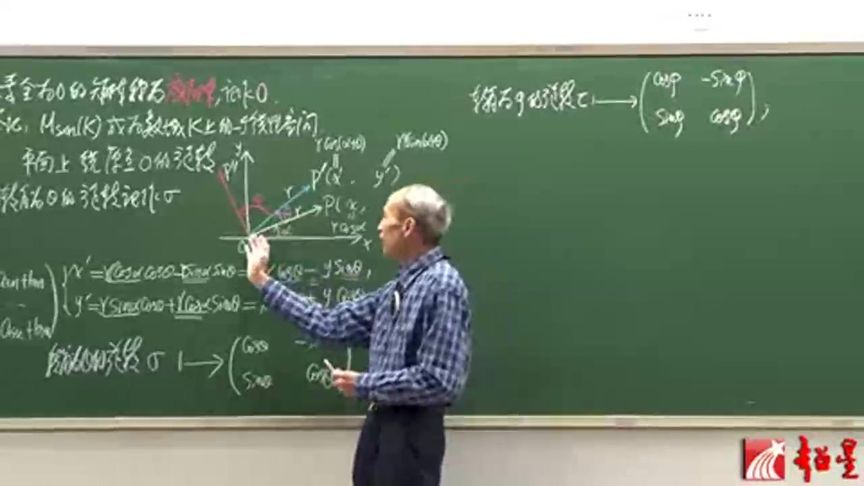 全为0的矩阵称为零矩阵,记作0.
M_{s×n}(K)成为数域K上的一个线性空间
平面上绕原点O的旋转
转角为θ的旋转记作σ
y
P″
P′(x′, y′)
rcos(α+θ)
rsin(α+θ)
P(x,
rcosα
r
r
θ
α
x
x′=rcosαcosθ-rsinαsinθ= xcosθ-ysinθ,
y′=rsinαcosθ+rcosαsinθ= + ycosθ
转角为θ的旋转σ ↦ (cosθ -
sinθ cosθ)
转角为φ的旋转τ ↦ (cosφ -sinφ
sinφ cosφ),
超星